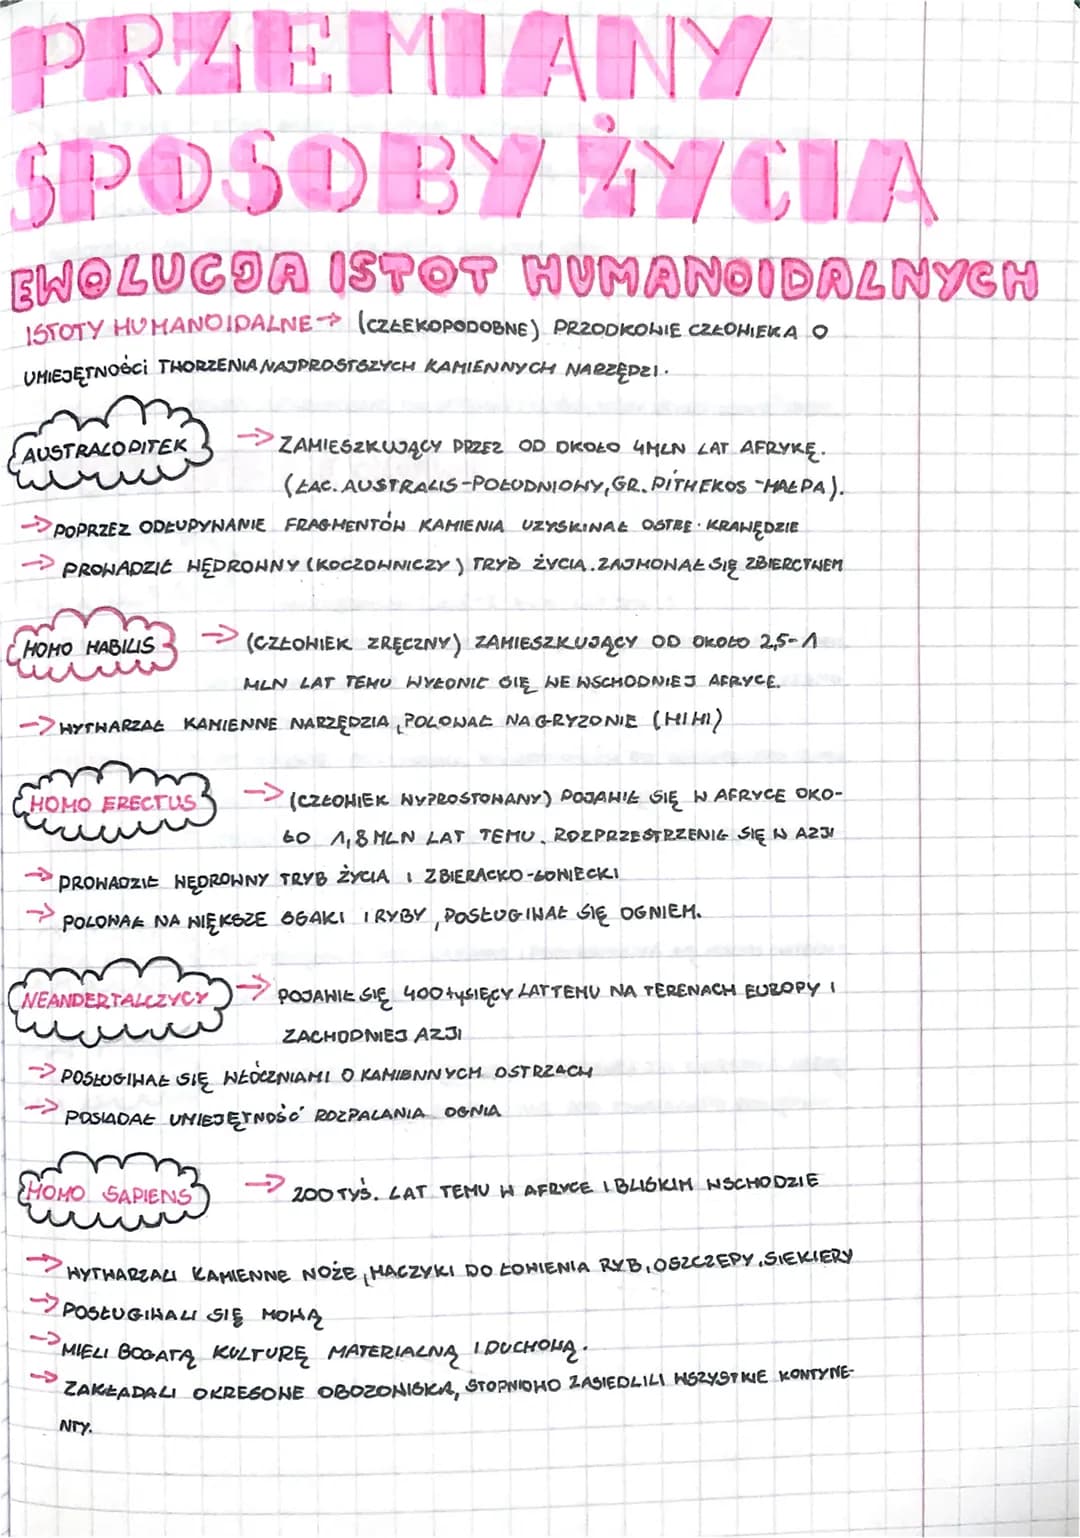 PRZEMIANY
SPOSOBY ŻYCIA
EWOLUCJA ISTOT HUMANOIDALNYCH
ISTOTY HUMANOIDALNE → (CZŁEKOPODOBNE) PRZODKOWIE CZŁOWIEKA O
UMIEJĘTNOŚCI TWORZENIA NAJPROSTSZYCH KAMIENNYCH NARZĘDZI.
AUSTRALOPITEK → ZAMIESZKUJĄCY PRZEZ OD OKOŁO 4MLN LAT AFRYKĘ.
(ŁAC. AUSTRALIS-POŁUDNIOWY, GR. PITHEKOS -MAŁPA).
→ POPRZEZ ODŁUPYWANIE FRAGMENTÓW KAMIENIA UZYSKIWAŁ OSTRE KRAWĘDZIE
→ PROWADZIŁ WĘDROWNY (KOCZOWNICZY) TRYB ŻYCIA. ZAJMOWAŁ SIĘ ZBIERCTWEM
HOMO HABILIS → (CZŁOWIEK ZRĘCZNY) ZAMIESZKUJĄCY OD OKOŁO 2,5-1
MLN LAT TEMU WYŁONIŁ SIĘ WE WSCHODNIEJ AFRYCE.
→ WYTWARZAŁ KAMIENNE NARZĘDZIA, POLOWAŁ NA GRYZONIE (HIHI)
HOMO ERECTUS → (CZŁOWIEK WYPROSTOWANY) POJAWIŁ SIĘ W AFRYCE OKO-
ŁO 1,8 MLN LAT TEMU. ROZPRZESTRZENIŁ SIĘ W AZJI
→ PROWADZIŁ WĘDROWNY TRYB ŻYCIA I ZBIERACKO-ŁOWIECKI
→ POLOWAŁ NA WIĘKSZE SSAKI I RYBY, POSŁUGIWAŁ SIĘ OGNIEM.
NEANDERTALCZYCY → POJAWIŁ SIĘ 400 tysIĘCY LAT TEMU NA TERENACH EUROPY I
ZACHODNIEJ AZJI
→ POSŁUGIWAŁ SIĘ WŁÓCZNIAMI O KAMIENNYCH OSTRZACH
→ POSIADAŁ UMIEJĘTNOŚĆ ROZPALANIA OGNIA
HOMO SAPIENS → 200 TYŚ. LAT TEMU W AFRYCE I BLISKIM WSCHODZIE
→ WYTWARZALI KAMIENNE NOŻE, HACZYKI DO ŁOWIENIA RYB, OSZCZEPY, SIEKIERY
→ POSŁUGIWALI SIĘ MOWĄ
→ MIELI BOGATĄ KULTURĘ MATERIALNĄ I DUCHOWĄ.
→ ZAKŁADALI OKRESOWE OBOZOWISKA, STOPNIOWO ZASIEDLILI WSZYSTKIE KONTYNE-
NTY.